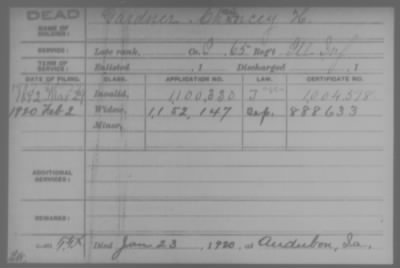 DEAD
NAME OF SOLDIER: Gardner, Chauncey H.
SERVICE: Late rank, Co. 65 Reg't Ill. Inf.
TERM OF SERVICE: Enlisted , 1 Discharged , 1
DATE OF FILING. CLASS. APPLICATION NO. LAW. CERTIFICATE NO.
1892 Mar 29 Invalid, 1,100,330 1,004,518
1920 Feb 2 Widow, 1,152,147 888633
Minor,
ADDITIONAL SERVICES:
REMARKS:
Died Jan 23, 1920, at Audubon, Ia.